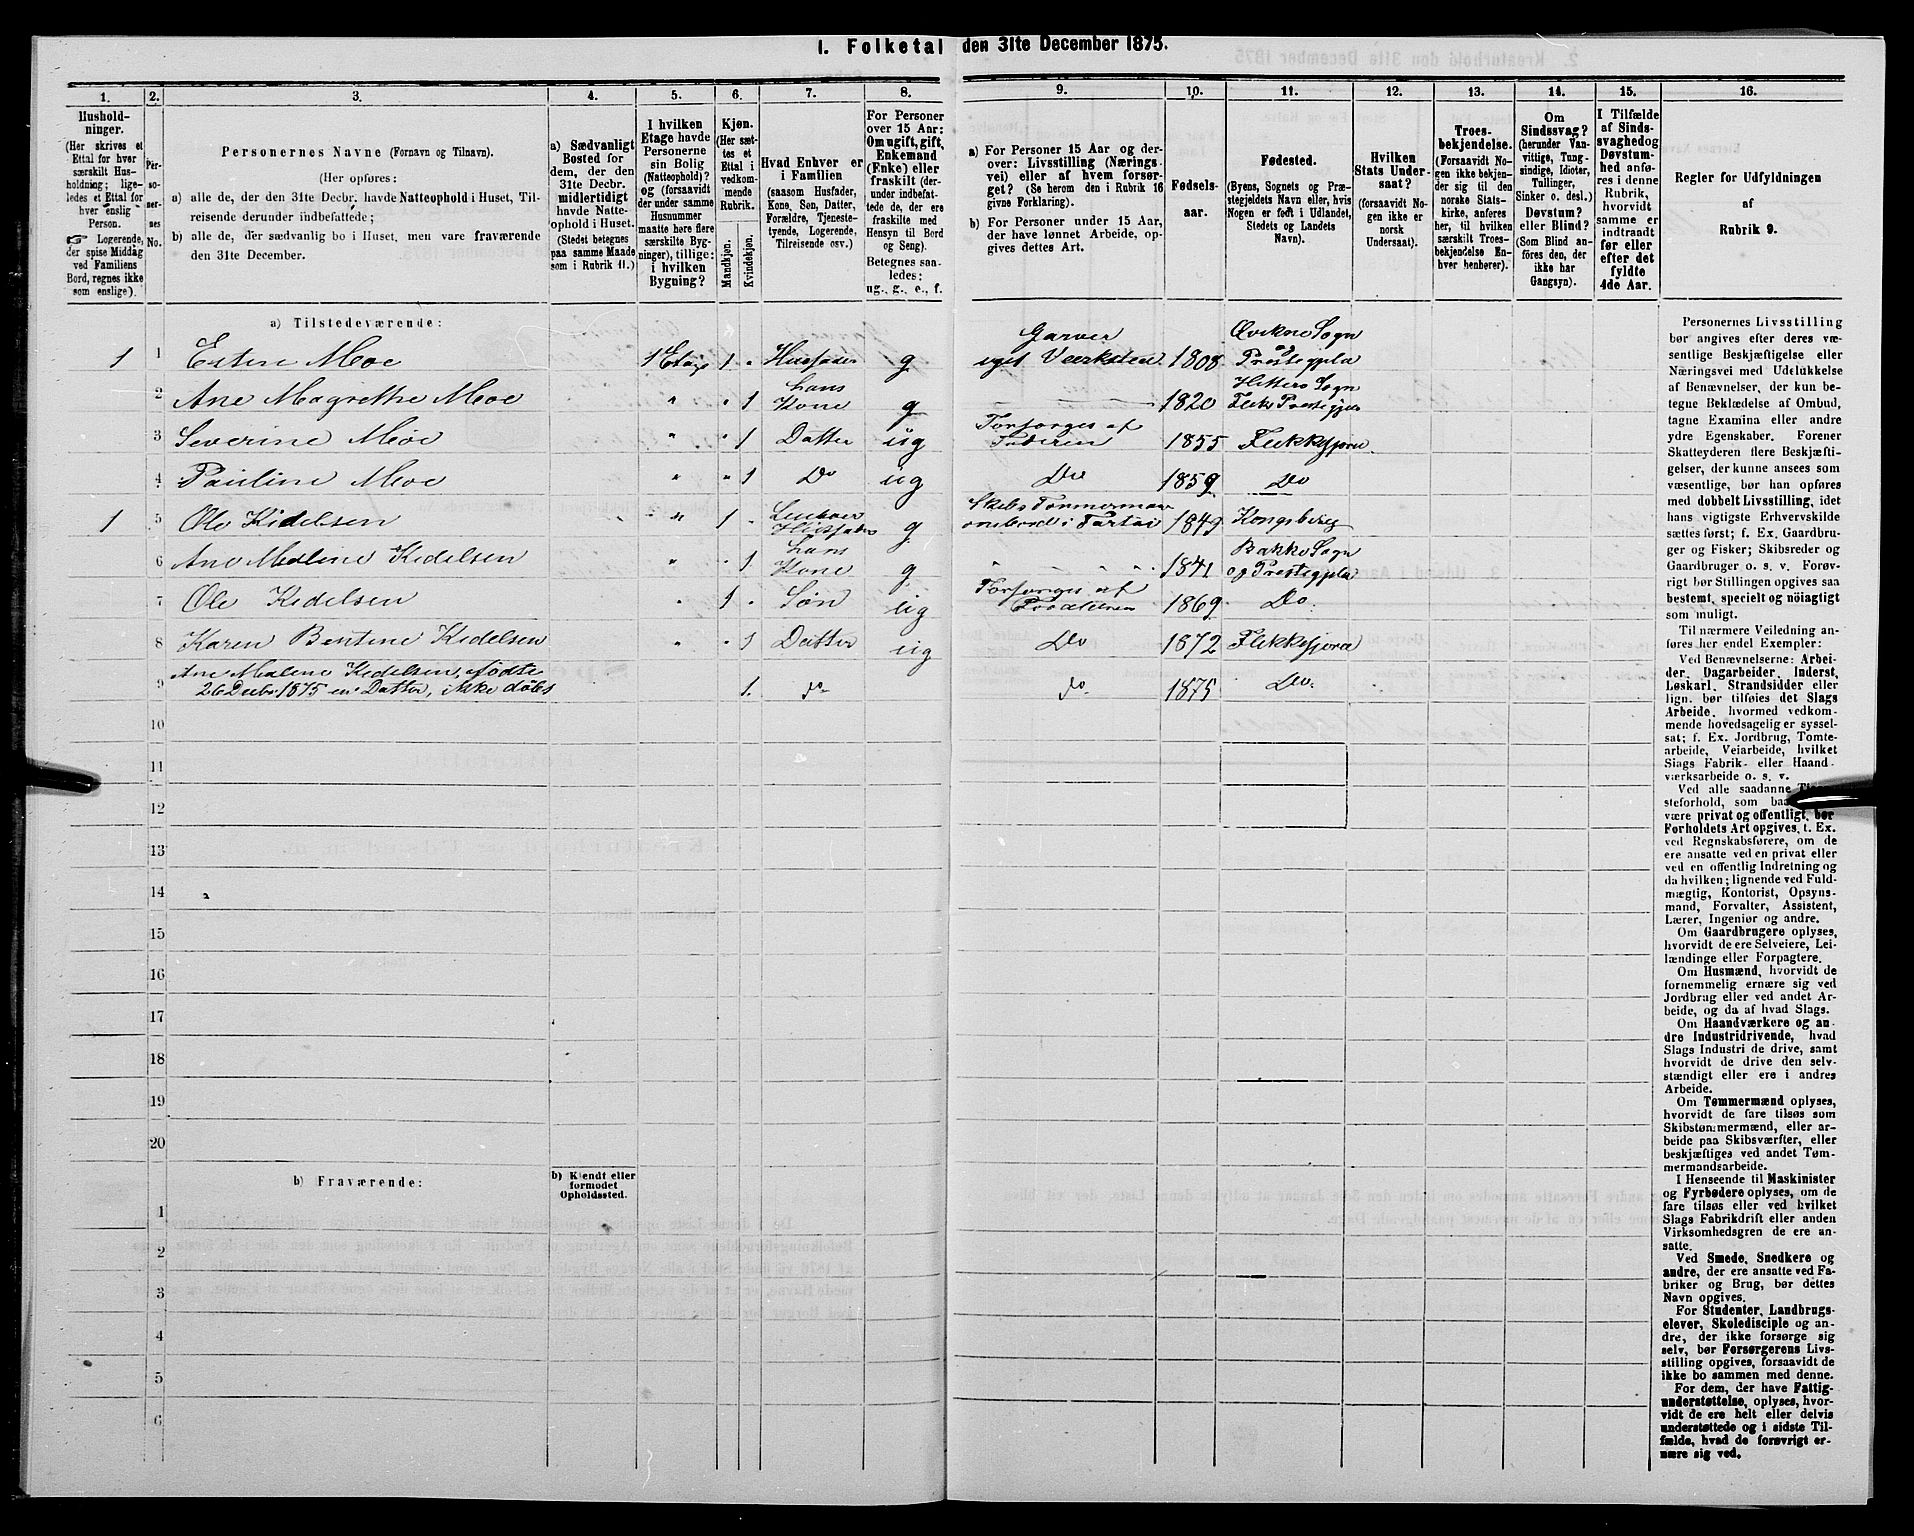 1. Folketal den 31te December 1875.
1. 2. 3. 4. 5. 6. 7. 8. 9. 10. 11. 12. 13. 14. 15. 16.
Hushold-
ninger.
(Her skrives et
Ettal for hver
særskilt Hus-
holdning; lige-
ledes et Ettal for
hver enslig
Person.
☞ Logerende,
der spise Middag
ved Familiens
Bord, regnes ikke
som enslige).
Per-
so-
ner-
nes
No.
Personernes Navne (Fornavn og Tilnavn).
(Her opføres:
a) alle de, der den 31te Decbr. havde Natteophold i Huset, Til-
reisende derunder indbefattede;
b) alle de, der sædvanlig bo i Huset, men vare fraværende
den 31te December.
a) Sædvanligt
Bosted for
dem, der den
31te Decbr.
midlertidigt
havde Natte-
ophold i Huset.
(Stedet betegnes
paa samme Maade
som i Rubrik 11.)
I hvilken
Etage havde
Personerne
sin Bolig
(Natteophold)?
og (forsaavidt
der under samme
Husnummer
maatte høre flere
særskilte Byg-
ninger), tillige:
i hvilken
Bygning?
Kjøn.
(Her sæt-
tes et
Ettal i
vedkom-
mende
Rubrik.
Mandkjøn.
Kvindekjøn.
Hvad Enhver er
i Familien
(saasom Husfader,
Kone, Søn, Datter,
Forældre, Tjeneste-
tyende, Logerende,
Tilreisende osv.)
For Personer
over 15 Aar:
Om ugift, gift,
Enkemand
(Enke) eller
fraskilt (der-
under indbefat-
tede de, der ere
fraskilte med
Hensyn til Bord
og Seng).
Betegnes saa-
ledes:
ug., g., e., f.
a) For Personer 15 Aar og der-
over: Livsstilling (Nærings
vei) eller af hvem forsør-
get? (Se herom den i Rubrik 16
givne Forklaring).
b) For Personer under 15 Aar,
der have lønnet Arbeide, op-
gives dettes Art.
Fødsels-
aar.
Fødested.
(Byens, Sognets og Præ-
stegjeldets Navn eller, hvis
Nogen er født i Udlandet,
Stedets og Landets
Navn).
Hvilken
Stats Under-
saat?
(forsaavidt No-
gen ikke er
norsk
Undersaat).
Troes-
bekjendelse.
(Forsaavidt No-
gen ikke bekjen-
der sig til den
norske Stats-
kirke, anføres
her, til hvilken
særskilt Troes-
bekjendelse En-
hver henhører).
Om
Sindssvag?
(herunder Van-
vittige, Tung-
sindige, Idioter,
Tullinger,
Sinker o. desl.)
Døvstum?
eller Blind?
(Som Blind an-
føres den, der
ikke har
Gangsyn).
I Tilfælde
af Sinds-
svaghed og
Døvstum-
hed anfø-
res i denne
Rubrik,
hvorvidt
samme er
indtraadt
før eller
efter det
fyldte
4de Aar.
Regler for Udfyldningen
af
Rubrik 9.
a) Tilstedeværende:
1 1 Esten Moe 1 Etage 1 Husfader g Garver eget Værksted 1808 Qvikne Sogn og Prestegjeld
2 Ane Magrethe Moe " 1 Hans Kone g 1820 Hitterø Sogn Flek Prestegjeld
3 Severine Moe " 1 Datter ug Forsørges af Faderen 1855 Flekkefjord
4 Pauline Moe " 1 Do ug Do 1859 Do
1 5 Ole Kidelsen " 1 Husfader g Skibs Tømmermand ombord i 1849 Kongsberg
6 Ane Malene Kidelsen " 1 Hans Kone g 1841 Bakke Sogn og Prestegjeld
7 Ole Kidelsen " 1 Søn ug Forsørges af 1869 Do.
8 Karen Bentine Kidelsen " 1 Datter ug Do 1872 Flekkefjord
Ane Malene Kidelsen, fødte
9 26 Decbr 1875 en Datter, ikke døbt 1. do do 1875 Do.
10
11
12
13
14
15
16
17
18
19
20
b) Fraværende:
b) Kjendt eller
formodet
Opholdssted.
1
2
3
4
5
6
Personernes Livsstilling
bør angives efter deres væ-
sentlige Beskjæftigelse eller
Næringsvei med Udelukkelse
af Benævnelser, der kun be-
tegne Beklædelse af Ombud,
tagne Examina eller andre
ydre Egenskaber. Forener
Skatteyderen flere Beskjæfti-
gelser, der kunne ansees som
væsentlige, bør han opføres
med dobbelt Livsstilling, idet
hans vigtigste Erhvervskilde
sættes først; f. Ex. Gaardbru-
ger og Fisker; Skibsreder og
Gaardbruger o. s. v. Forøv-
rigt bør Stillingen opgives saa
bestemt, specielt og nöiagtigt
som muligt.
Til nærmere Veiledning an-
føres her endel Exempler:
Ved Benævnelserne: Arbei-
der, Dagarbeider, Inderst,
Løskarl, Strandsidder eller
lign. bør tilføies det Slags
Arbeide, hvormed vedkom-
mende hovedsagelig er syssel-
sat; f. Ex. Jordbrug, Tomte-
arbeide, Veiarbeide, hvilket
Slags Fabrik- eller Haand-
værksarbeide o. s. v.
Ved alle saadanne
steforhold, som
være privat og offentligt, bør
Forholdets Art opgives, t. Ex.
ved Regnskabsførere, om de
ere ansatte ved en privat eller
ved en offentlig Indretning og
da hvilken; lignende ved Fuld-
mægtig, Kontorist, Opsyns-
mand, Forvalter, Assistent,
Lærer, Ingeniør og andre.
Om Gaardbrugere oplyses,
hvorvidt de ere Selveiere, Lei-
lændinge eller Forpagtere.
Om Husmænd, hvorvidt de
fornemmelig ernære sig ved
Jordbrug eller ved andet Ar-
beide, og da af hvad Slags.
Om Haandværkere og an-
dre Industridrivende, hvad
Slags Industri de drive, samt
hvorvidt de drive den selv-
stændigt eller ere i andres
Arbeide.
Om Tømmermænd oplyses,
hvorvidt de fare tilsøs som
Skibstømmermænd, eller ar-
beide paa Skibsværfter, eller
beskjæftiges ved andet Tøm-
mermandsarbeide.
I Henseende til Maskinister
og Fyrbødere oplyses, om de
fare tilsøs eller ved hvilket
Slags Fabrikdrift eller anden
Virksomhedsgren de ere an-
satte.
Ved Smede, Snedkere og
andre, der ere ansatte ved Fa-
briker og Brug, bør dettes
Navn opgives.
For Studenter, Landbrugs-
elever, Skoledisciple og an-
dre, der ikke forsørge sig
selv, bør Forsørgerens Livs-
stilling opgives, forsaavidt de
ikke bo sammen med denne.
For dem, der have Fattig-
understøttelse, oplyses, hvor-
vidt de ere helt eller delvis
understøttede og i sidste Til-
fælde, hvad de forøvrigt er-
nære sig ved.